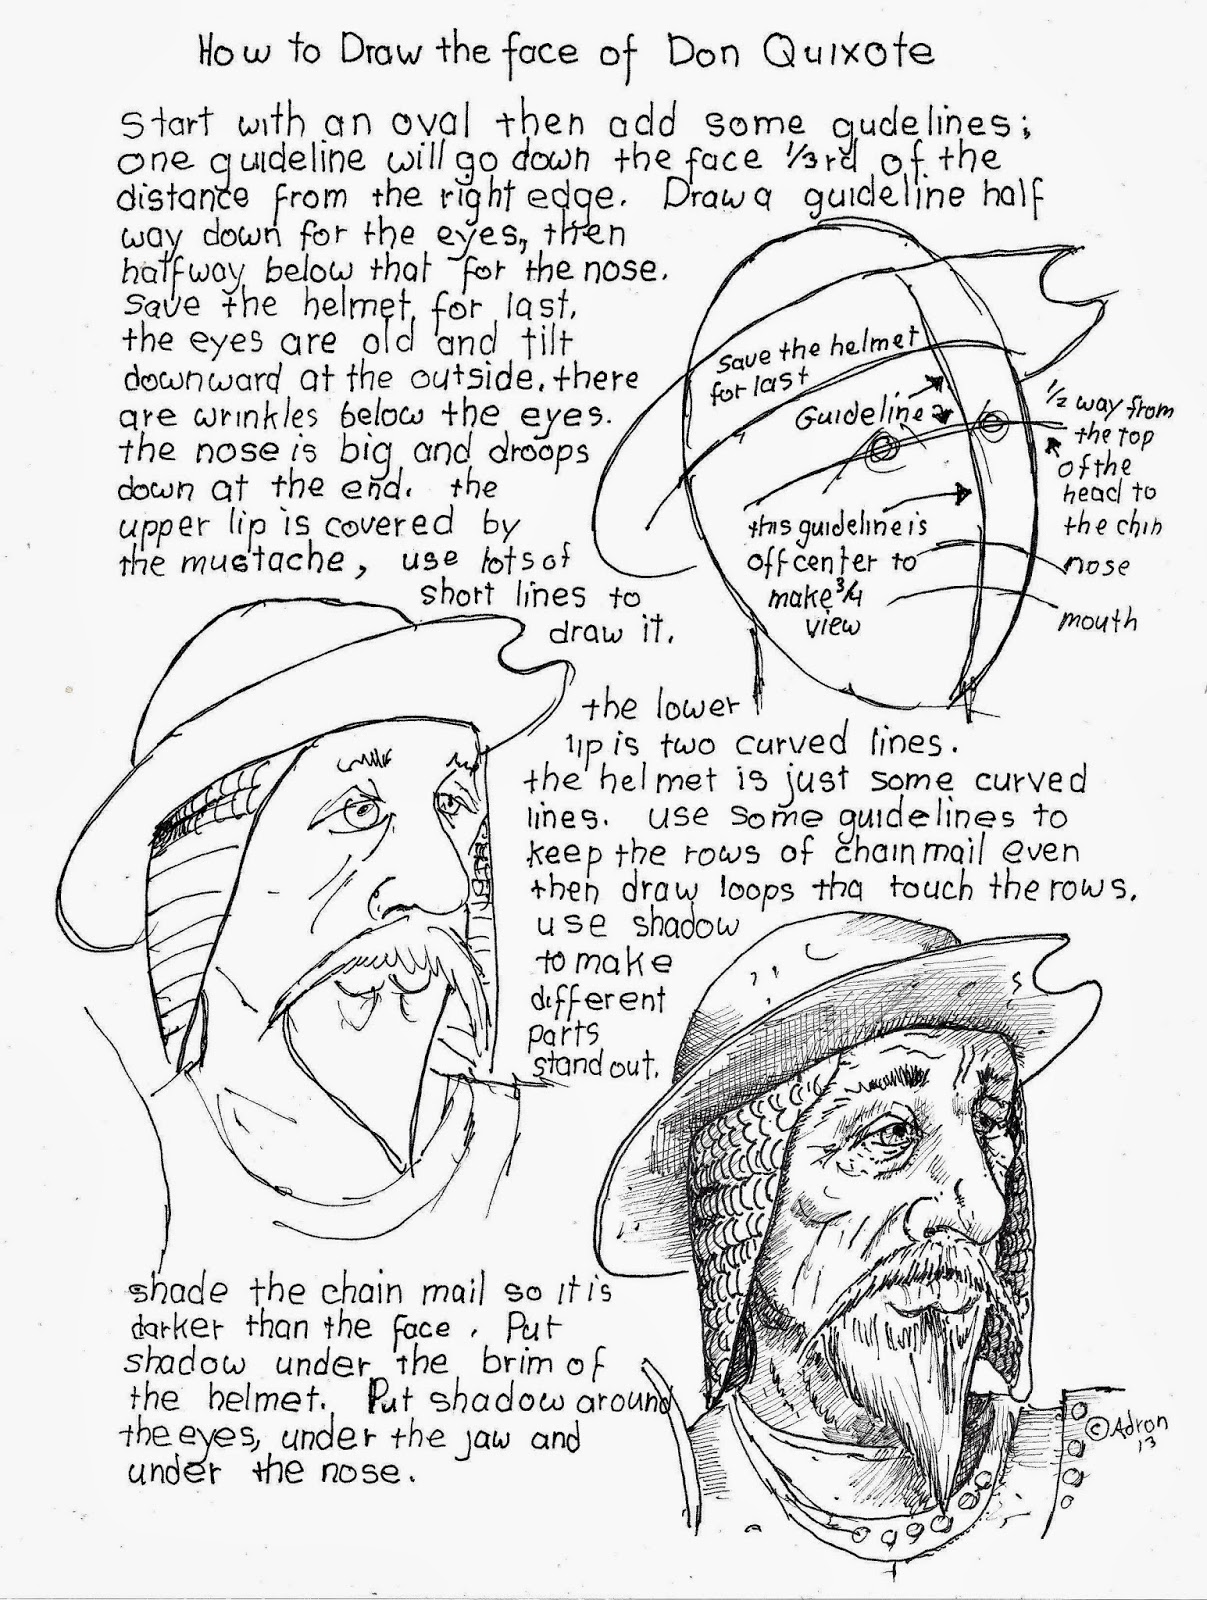 How to Draw the face of Don Quixote
Start with an oval then add some gudelines;
one guideline will go down the face 1/3rd of the
distance from the right edge. Draw a guideline half
way down for the eyes, then
halfway below that for the nose.
Save the helmet for last.
the eyes are old and tilt
downward at the outside. there
are wrinkles below the eyes.
the nose is big and droops
down at the end. the
upper lip is covered by
the mustache, use lots of
short lines to
draw it.
Save the helmet
for last
Guideline
1/2 way from
the top
of the
head to
the chin
this guideline is
off center to
make 3/4
view
nose
mouth
the lower
lip is two curved lines.
the helmet is just some curved
lines. use some guidelines to
keep the rows of chainmail even
then draw loops tha touch the rows.
use shadow
to make
different
parts
stand out.
shade the chain mail so it is
darker than the face. Put
shadow under the brim of
the helmet. Put shadow around
the eyes, under the jaw and
under the nose.
©Adron
13